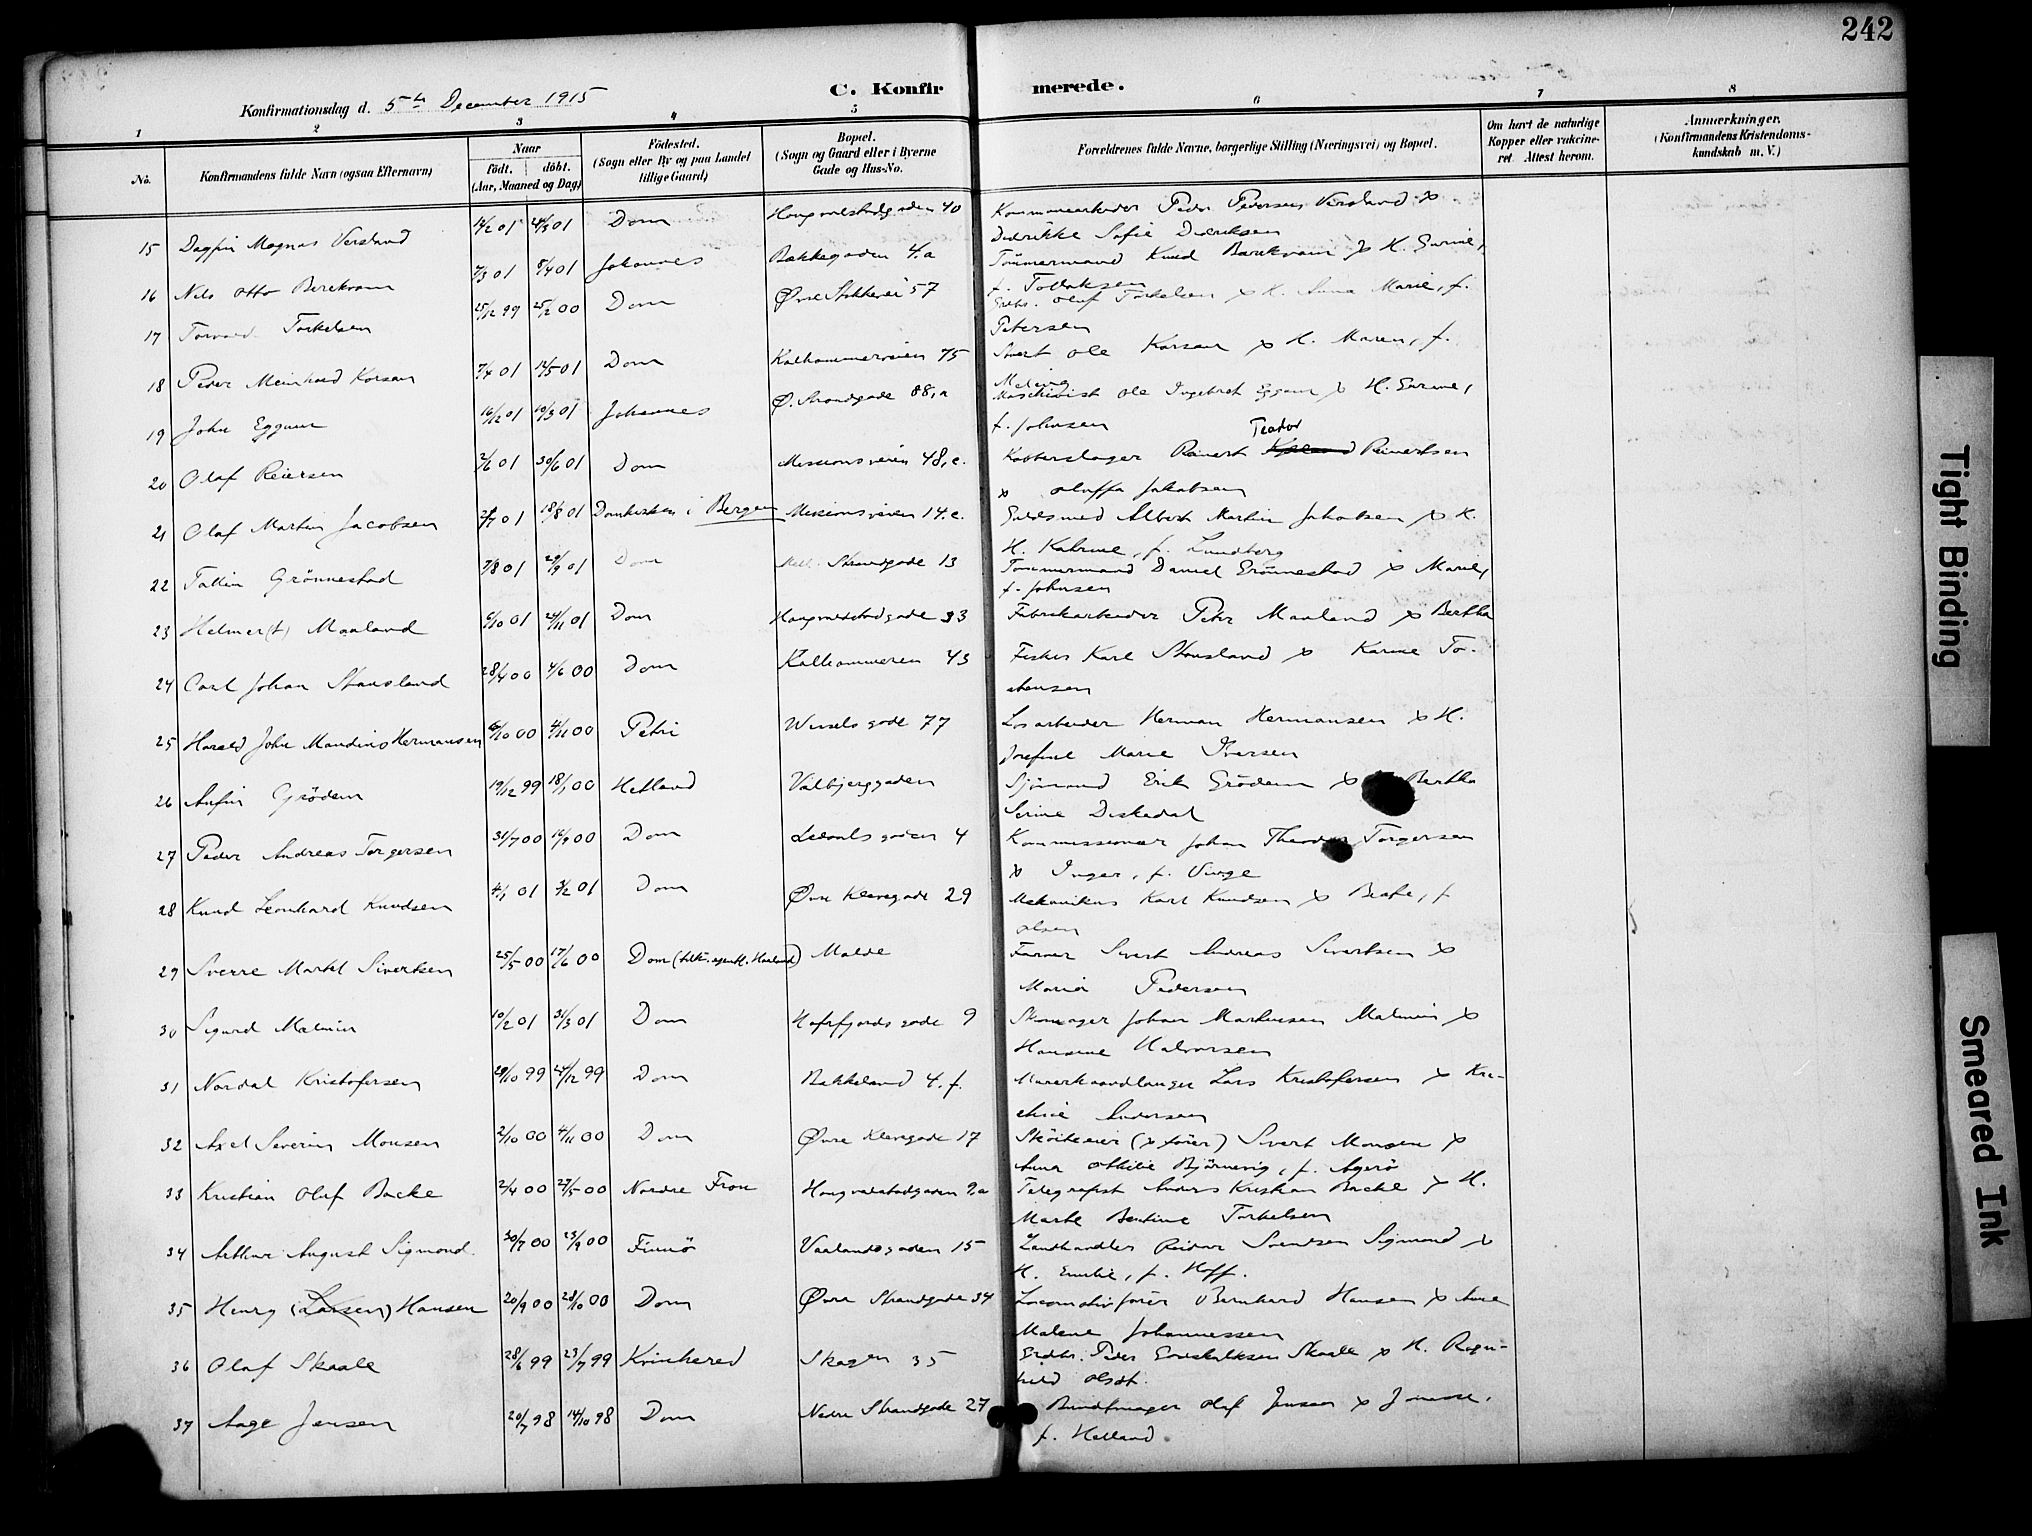 242
C. Konfirmerede.
Konfirmationsdag d. 5te December 1915
1 2 3 4 5 6 7 8
No.
Konfirmandens fulde Navn (ogsaa Efternavn)
Naar
födt. döbt.
(Aar, Maaned og Dag)
Födested.
(Sogn eller By og paa Landet
tillige Gaard)
Bopæl.
(Sogn og Gaard eller i Byerne
Gade og Hus-No.
Forældrenes fulde Navne, borgerlige Stilling (Næringsvei) og Bopæl.
Om havt de naturlige
Kopper eller vakcine-
ret. Attest herom.
Anmærkninger.
(Konfirmandens Kristendoms-
kundskab m. V.)
15 Dagfin Magnus Versland 24/3 01 Dom 40 Peder Pedersen Versland x
Didrikke Sofie Didriksen
16 Nils Otto Berekvam 7/3 01 8/4 01 Johannes Bakkegaden 4.a Tömmermand Knud Berekvam x H. Gurine,
f. Tollaksen
17 Torkelsen 25/12 99 25/2 00 Dom Øvre Stokkevei 57 Grbr. Oluf Torkelsen x H. Anna Marie, f.
Petersen
18 Peder Meinhard Korsan 7/4 01 Dom Kalhammerveien 75 Ole Korsan x H. Maren, f.
Meling
19 John Eggum 16/12 01 10/3 01 Johannes Ø. Strandgade 88,a Maschinist Ole Ingebret Eggum x H. Gurine,
f. Johnsen
20 Olaf Reiersen 2/6 01 30/6 01 Dom Missionsveien 48,c. Kobberslager Reinert Teodor Reinertsen
x Oluffa Jakobsen
21 Olaf Martin Jacobsen 18/8 01 Domkirken i Bergen Missionsveien 14.c. Guldsmed Albert Martin Jakobsen x H.
H. Katrine, f. Lundberg
22 Tallin Grönnestad 7/8 01 29/9 01 Dom Strandgade 13 Tömmermand Daniel Grönnestad x Marie,
f. Johnsen
23 Helmer(t) Maaland 6/10 01 24/11 01 Dom 33 Fabrikarbeider Peter Maaland x Bertha
24 Carl Johan Stansland 28/4 00 4/6 00 Dom Kalhammeren 43 Fisker Karl Stansland x Karine To-
25 Harald John Maudius Hermansen 4/11 00 Petri Wesselsgade 77 Losarbeider Herman Hermansen x H.
Josefine Marie Iversen
26 Anfin Grödem 19/12 99 18/1 00 Hetland Valbjerggaden Sjömand Erik Grödem x Bertha
Serine Diskedal
27 Peder Andreas Torgersen 31/7 00 16/9 00 Dom Ledaals gaden 4 Kommissionær Johan Theodor Torgersen
x Inger, f. Vinge
28 Knud Leonhard Knudsen 4/1 01 3/2 01 Dom Øvre Klevegade 29 Mekanikus Karl Knudsen x Beate, f
Olsen
29 Sverre Martel Sivertsen 25/5 00 17/6 00 Dom Malde Farver Sivert Andreas Sivertsen x
Maria Pedersen
30 Sigurd Malmin 10/2 01 31/3 01 Dom Hafrsfjords gade 9 Skomager Johan Markusen Malmin x
Hansine Halvorsen
31 Nordal Kristofersen 29/10 99 24/12 99 Dom Bakkeland 4.f. Murerhaandlanger Lars Kristofersen x Kri-
stine Andersen
32 Axel Severin Monsen 2/10 00 4/11 00 Dom Øvre Klevegade 17 Sköiteeier (x förer) Sivert Monsen x
Anna Othilie Björnevig, f. Agerö
33 Kristian Oluf Backe 2/4 00 27/5 00 Nordre Fron 9.a Telegrafist Anders Kristian Backe x H.
Marte Bentine Torkelsen
34 Arthur August Sigmond. 30/7 00 23/9 00 Finnö Vaalandsgaden 15 Landhandler Reidar Svendsen Sigmond x
H. Emilie, f. Hoff.
35 Henry (Larsen) Hansen 20/9 00 28/10 00 Dom Øvre Strandgade 34 Locomotivförer Bernhard Hansen x Anna
Malene Johannessen
36 Olaf Skaale 28/6 99 23/7 99 Kvinhered Skagen 35 Grdbr. Peder Skaale x H. Ragn-
hild Olsdt.
37 Aage Jensen 20/7 98 14/10 98 Dom Nedre Strandgade 27 Buntmager Oluf Jensen x
f. Helland
Tight Binding
Smeared Ink